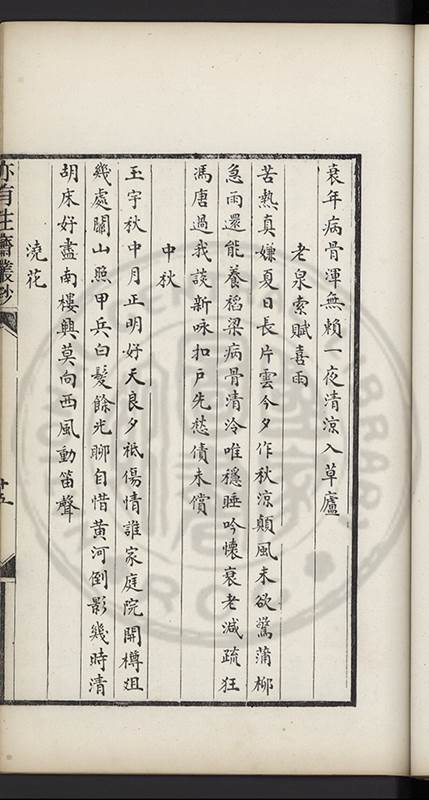 衰年病骨渾無賴一夜清涼入草廬
老泉索賦喜雨
苦熱真嫌夏日長片雲今夕作秋涼顛風未欲驚蒲柳
急雨還能養稻粱病骨清泠唯穩睡吟懷衰老減疏狂
馮唐過我談新咏扣戶先愁債未償
中秋
玉宇秋中月正明好天良夕祗傷情誰家庭院開樽俎
幾處關山照甲兵白髮餘光聊自惜黃河倒影幾時清
胡床好盡南樓興莫向西風動笛聲
澆花
亦有生齋叢鈔
十五